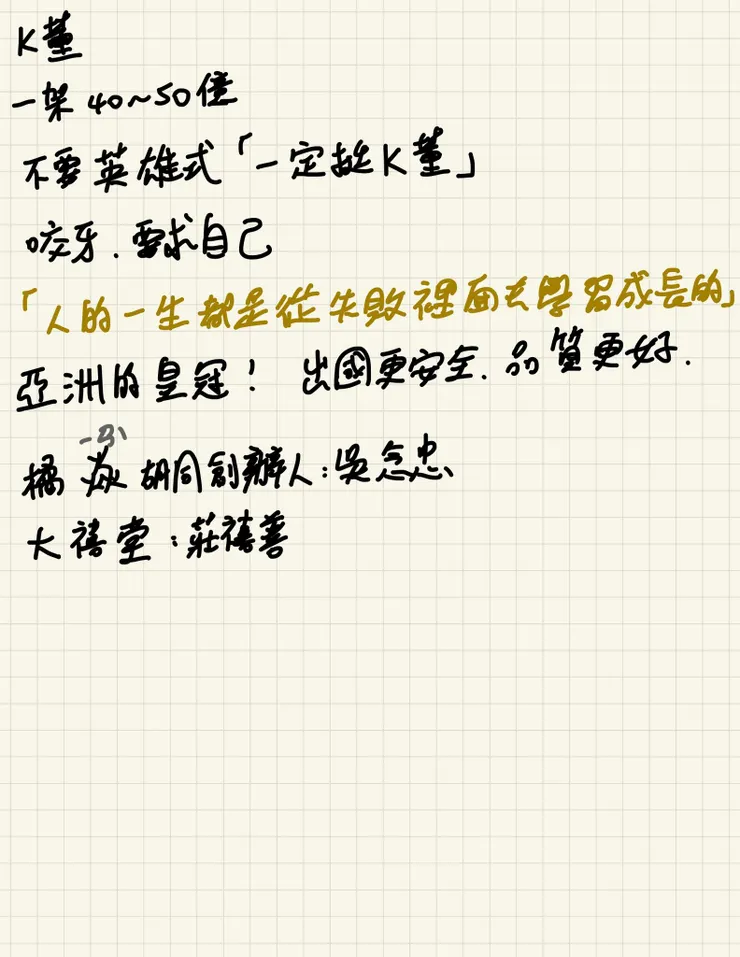 K董
一架 40~50億
不要英雄式「一定挺K董」
咬牙.要求自己
「人的一生都是從失敗裡面去學習成長的」
亞洲的皇冠! 出國更安全.品質更好.
ㄧㄢˋ
橘焱胡同創辦人:吳念忠
大禧堂:莊禧善